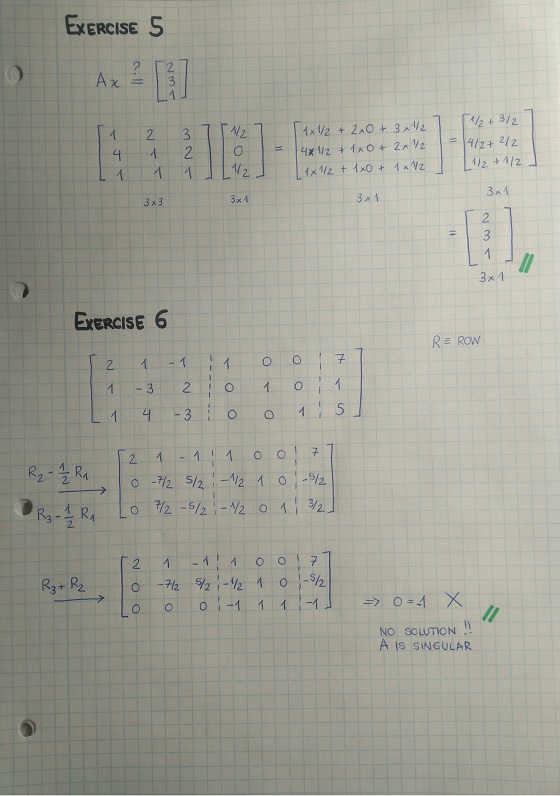 EXERCISE 5
Ax ?= [2 3 1]
[1 2 3] [1/2] = [1×1/2 + 2×0 + 3×1/2] = [1/2 + 3/2]
[4 1 2] [0] [4×1/2 + 1×0 + 2×1/2] [4/2 + 2/2]
[1 1 1] [1/2] [1×1/2 + 1×0 + 1×1/2] [1/2 + 1/2]
3×3 3×1 3×1 3×1
= [2 3 1]
3×1
EXERCISE 6
R ≡ ROW
2 1 -1 1 0 0 7
1 -3 2 0 1 0 1
1 4 -3 0 0 1 5
R2 - 1/2 R1
R3 - 1/2 R1
2 1 -1 1 0 0 7
0 -7/2 5/2 -1/2 1 0 -5/2
0 7/2 -5/2 -1/2 0 1 3/2
R3 + R2
2 1 -1 1 0 0 7
0 -7/2 5/2 -1/2 1 0 -5/2
0 0 0 -1 1 1 -1
⇒ 0 = -1 X
NO SOLUTION !!
A IS SINGULAR